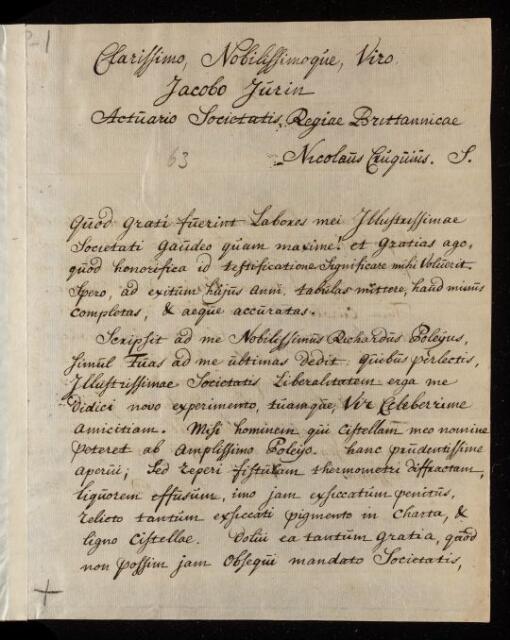 Clarissimo, Nobilissimoque, Viro.
Jacobo Jurin
Actuario Societatis, Regiae Brittannicae
Nicolaus Cruquius. S.
63
Quod grati fuerint Labores mei Illustrissimae
Societati gaudeo quam maxime: et gratias ago,
quod honorifica id testificatione significare mihi Voluerit.
Spero, ad exitum hujus Anni tabulas mittere, haud minus
completas, & aeque accuratas.
Scripsit ad me Nobilissimus Richardus Poleyus,
simul Tuas ad me ultimas dedit: quibus perlectis,
Illustrissimae Societatis Liberalitatem erga me
Didici novo experimento, tuamque, Vir Celeberrime
amicitiam. Misi hominem qui Cistellam meo nomine
peteret ab Amplissimo Poleyo. hanc prudentissime
aperui; sed reperi fistulam thermometri diffractam,
liquorem effusum, imo jam exsiccatum penitus,
relicto tantum exsiccati pigmento in charta, &
ligno Cistellae. Dolui ea tantum gratia, quod
non possim jam Obsequi mandato Societatis,